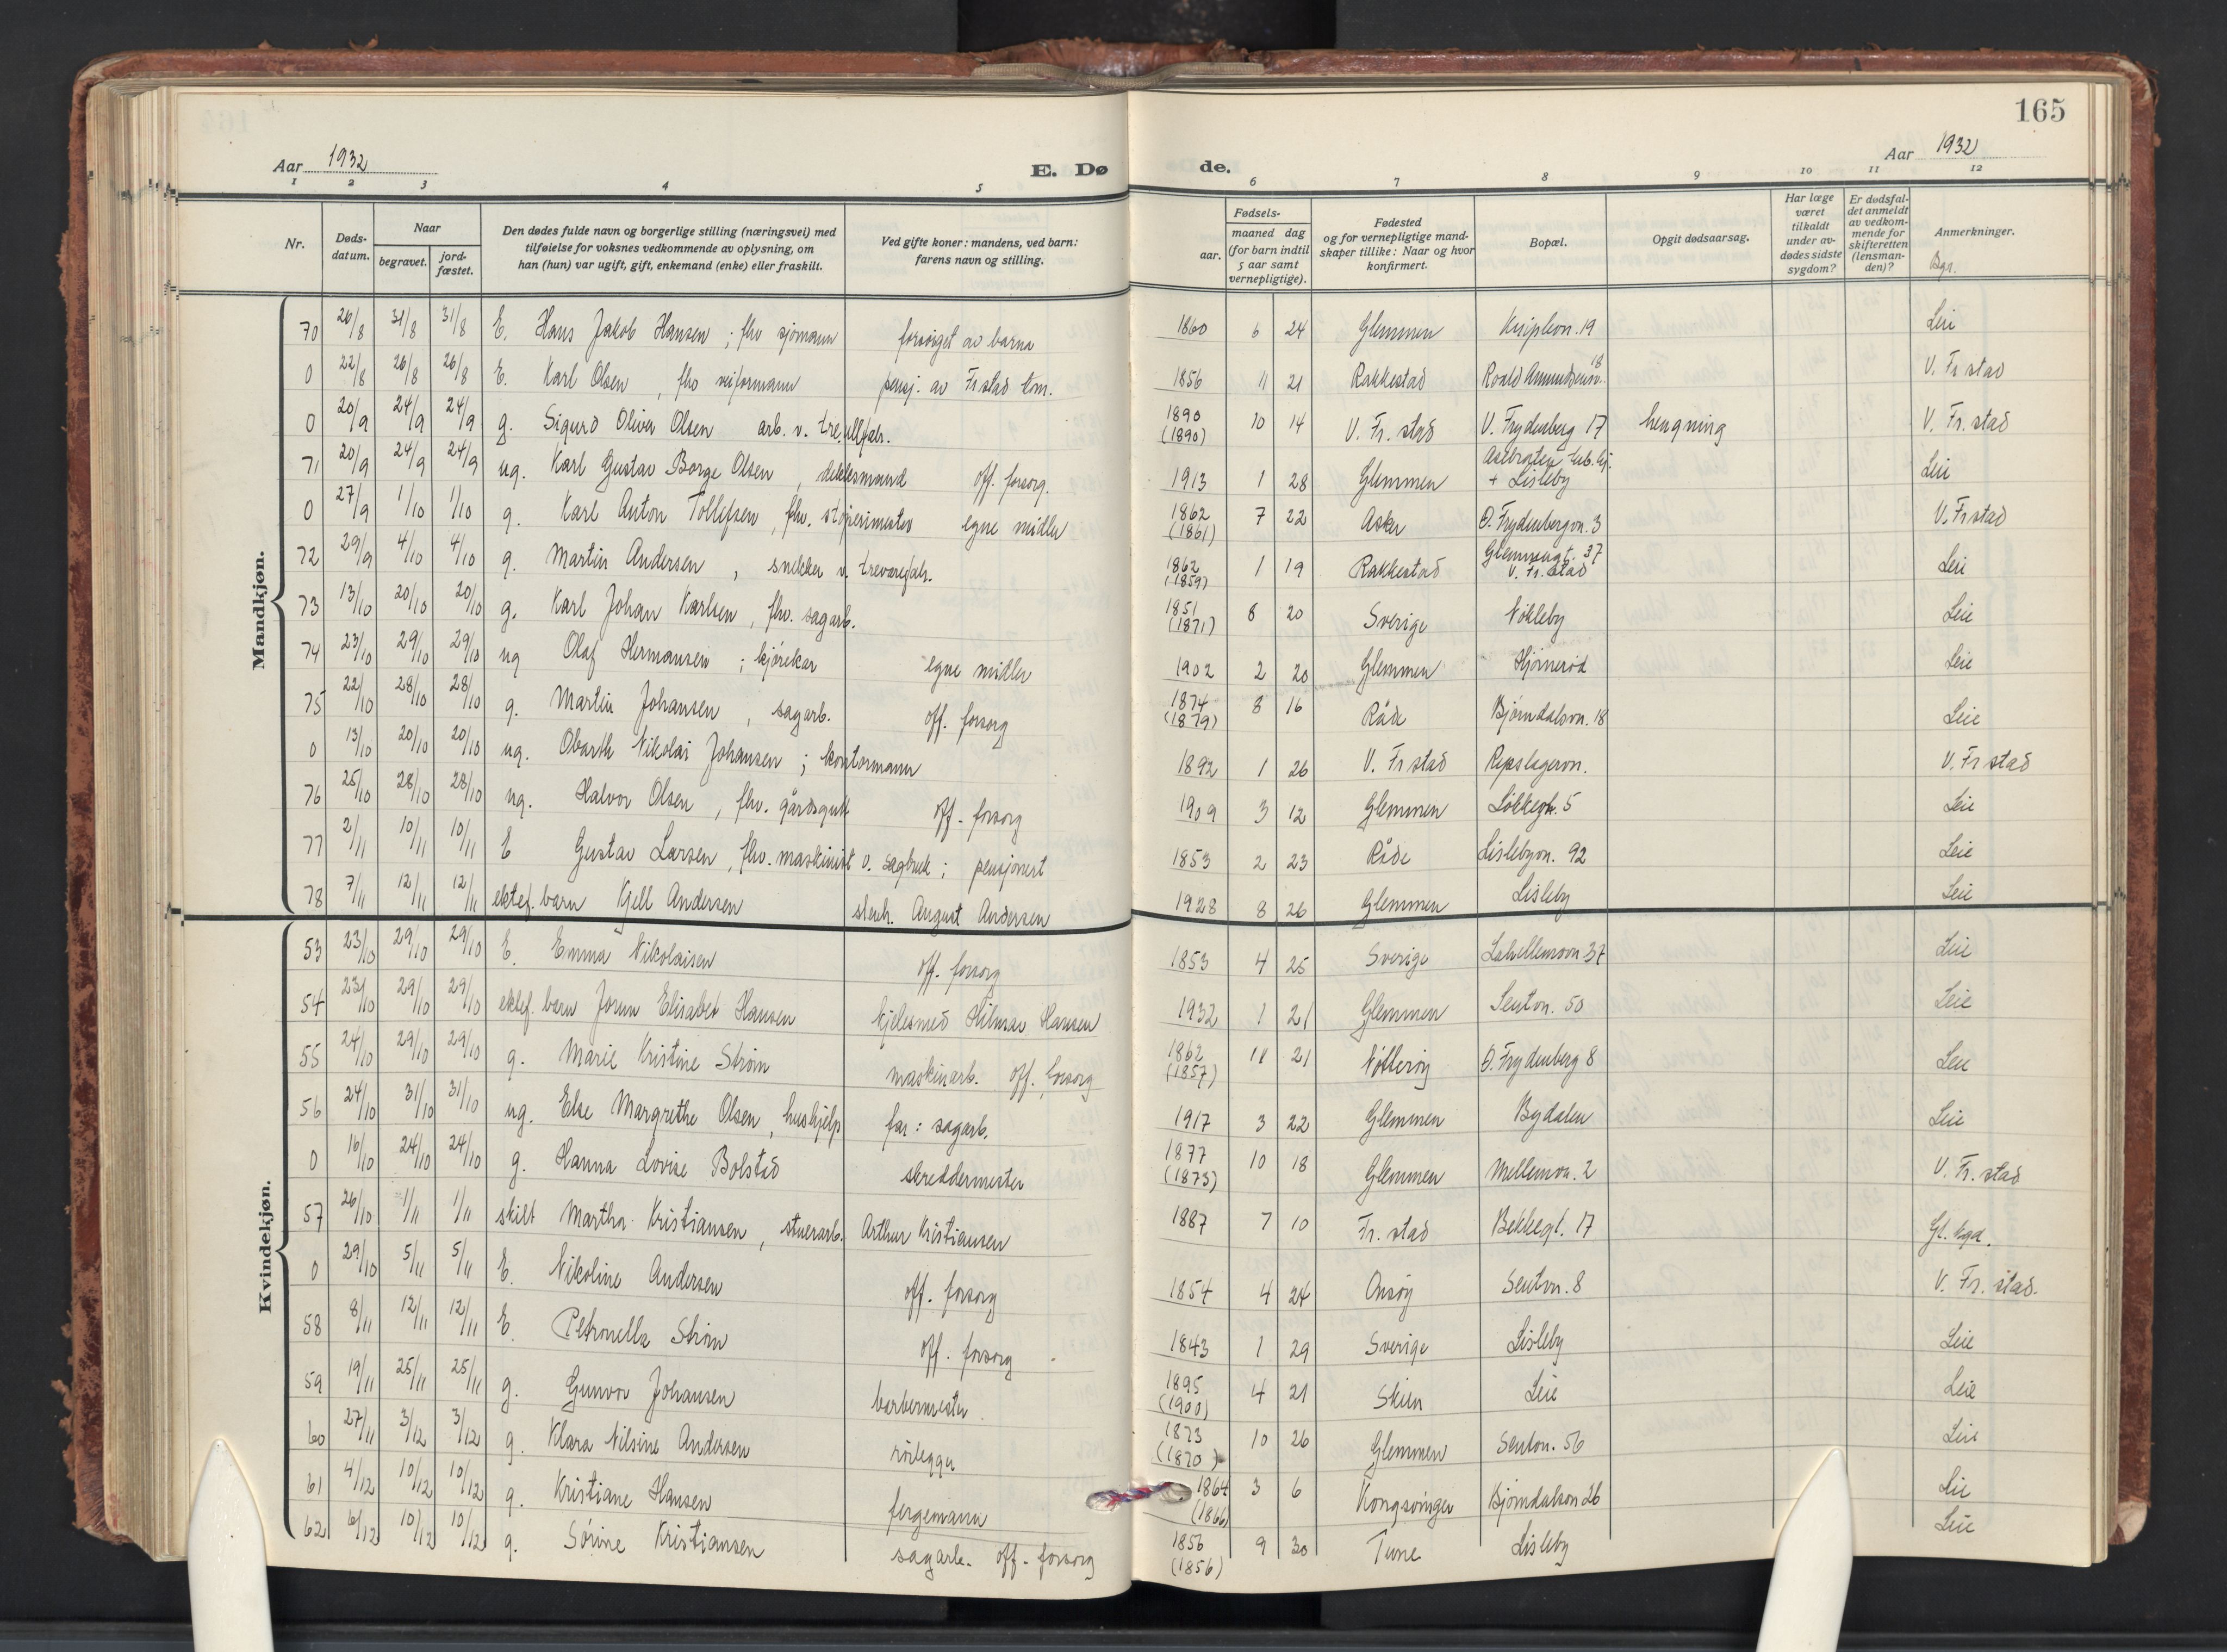 165
Aar 1932
E. Dø
de.
Aar 1932
1 2 3 4 5 6 7 8 9 10 11 12
Nr.
Døds-
datum.
Naar
begravet.
jord-
fæstet.
Den dødes fulde navn og borgerlige stilling (næringsvei) med
tilføielse for voksnes vedkommende av oplysning, om
han (hun) var ugift, gift, enkemand (enke) eller fraskilt.
Ved gifte koner: mandens, ved barn:
farens navn og stilling.
Fødsels-
aar.
maaned dag
(for barn indtil
5 aar samt
vernepligtige).
Fødested
og for vernepligtige mand-
skaper tillike: Naar og hvor
konfirmert.
Bopæl.
Opgit dødsaarsag.
Har læge
været
tilkaldt
under av-
dødes sidste
sygdom?
Er dødsfal-
det anmeldt
av vedkom-
mende for
skifteretten
(lensman-
den)?
Anmerkninger.
Bgr.
Mandkjøn.
70 26/8 31/8 31/8 E. Hans Jakob Hansen ; fhv sjømann forsørget av barna 1860 6 24 Glemmen 19 Leie
0 22/8 26/8 26/8 E. Karl Olsen , fhv veiformann pensj. av Fr stad kom. 1856 11 21 Rakkestad Roald Amundsensv. 18 V. Fr stad
0 20/9 24/9 24/9 g. Sigurd Oliver Olsen arb. v. 1890 (1890) 10 14 V. Fr. stad V. Frydenberg 17 hengning V. Fr. stad
71 20/9 24/9 24/9 ug. Karl Gustav Borge Olsen , dekksmand off. forsorg. 1913 1 28 Glemmen + Lisleby Leie
0 27/9 1/10 1/10 g. Karl Anton Tollefsen , fhv. støperimester egne midler 1862 (1861) 7 22 Asker Ø. Frydenbergv. 3 V. Fr stad
72 29/9 4/10 4/10 g. Martin Andersen , snekker v. trevarefabr. 1862 (1859) 1 19 Rakkestad Glemmengt. 37 V. Fr. stad Leie
73 13/10 20/10 20/10 g. Karl Johan Karlsen , fhv. sagarb. 1851 (1871) 8 20 Sverige Nøkleby Leie
74 23/10 29/10 29/10 ug Olaf Hermansen ; kjørekar egne midler 1902 2 20 Glemmen Hjørnerød Leie
75 22/10 28/10 28/10 g. Martin Johansen , sagarb. off. forsorg 1874 (1879) 8 16 Råde Bjørndalsvn. 18 Leie
0 13/10 20/10 20/10 ug. Obarth Nikolai Johansen ; kontormann 1892 1 26 V. Fr stad Repslagervn. V. Fr stad
76 25/10 28/10 28/10 ug. Halvor Olsen , fhv. gårdsgutt off. forsorg 1909 3 12 Glemmen Løkkegt. 5 Leie
77 2/11 10/11 10/11 E Gustav Larsen , fhv. maskinist v. sagbruk ; pensjonert 1853 2 23 Råde Lislebyvn. 92 Leie
78 7/11 12/11 12/11 ektef. barn Kjell Andersen August Andersen 1928 8 26 Glemmen Lisleby Leie
Kvindekjøn.
53 23/10 29/10 29/10 E. Emma Nikolaisen off. forsorg 1853 4 25 Sverige 37 Leie
54 23/10 29/10 29/10 ektef. barn Jorun Elisabet Hansen kjelesmed Hilmar Hansen 1932 1 21 Glemmen Seutvn. 50 Leie
55 24/10 29/10 29/10 g. Marie Kristine Strøm maskinarb. off. forsorg 1862 (1857) 11 21 Nøtterøy Ø. Frydenberg 8 Leie
56 24/10 31/10 31/10 ug. Else Margrethe Olsen , hushjelp far: sagarb. 1917 3 22 Glemmen Bydalen Leie
0 16/10 24/10 24/10 g. Hanna Lovise Bolstad skreddermester 1877 (1873) 10 18 Glemmen Mellemvn. 2 V. Fr. stad
57 26/10 1/11 1/11 skilt Martha Kristiansen , stuerarb. Arthur Kristiansen 1887 7 10 Fr. stad Bekkegt. 17 Gl. kgd.
0 29/10 5/11 5/11 E. Nikoline Andersen off. forsorg 1854 4 24 Onsøy Seutvn. 8 V. Fr. stad.
58 8/11 12/11 12/11 E. Petronella Strøm off. forsorg 1843 1 29 Sverige Lisleby Leie
59 19/11 25/11 25/11 g. Gunvor Johansen barbermester 1895 (1900) 4 21 Skien Leie Leie
60 27/11 3/12 3/12 g. Klara Nilsine Andersen rørlegger 1873 (1870) 10 26 Glemmen Seutvn. 56 Leie
61 4/12 10/12 10/12 g. Kristiane Hansen fergemann 1864 (1866) 3 6 Kongsvinger Bjørndalsvn 26 Leie
62 6/12 10/12 10/12 g. Sørine Kristiansen sagarb. off. forsorg 1856 (1856) 9 30 Tune Lisleby Leie